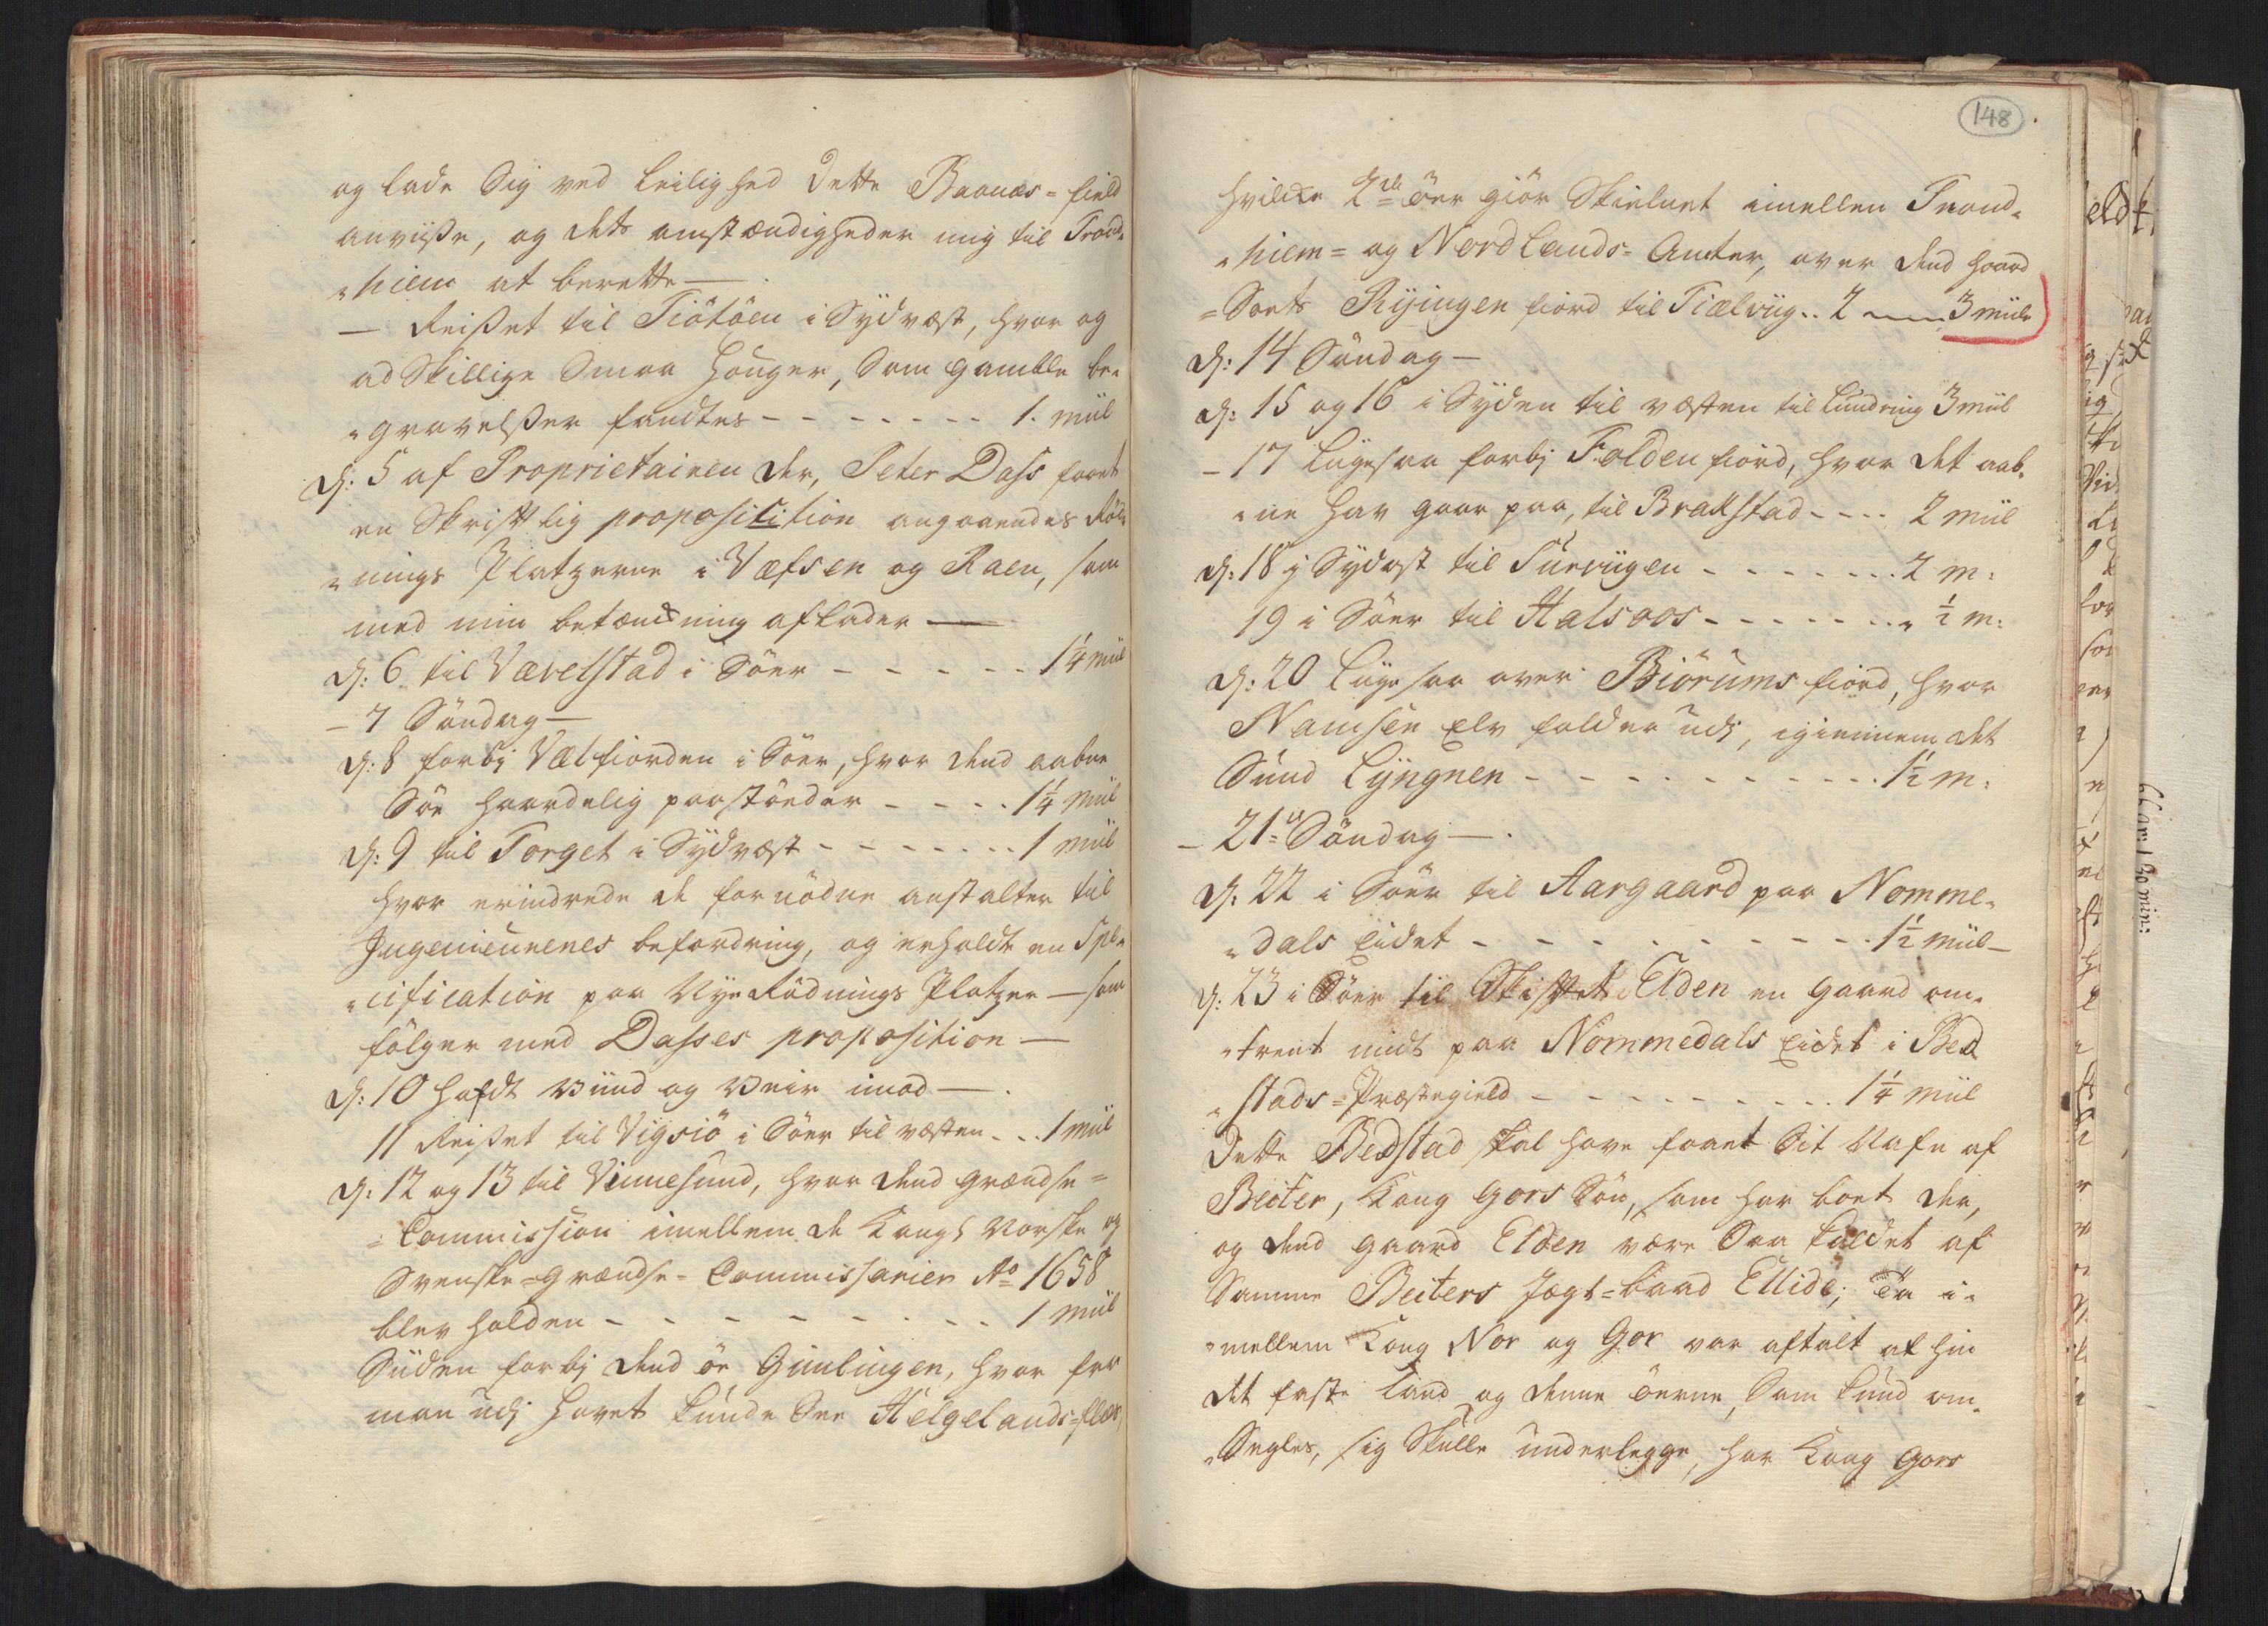 og lade Sig ved Leilighed dette Baanæs=field
anviiße, og dets omstændigheder mig til Trond„
„hiem at berette —
— Reißet til Tiötöen i Sydvest, hvor og
ad Skillige Smaa Houger, Som gamble be„
„gravelßer fandtes - - - - - - - 1. miil
d: 5 af Proprietairen der, Peter Dass faaet
en Skriftlig proposisition angaaendes Röd„
„nings Platzerne i Vefsen og Raen, som
med min betænckning afleder —
d: 6 til Vævelstad i Söer - - - - - 1¼ miil
– 7 Söndag —
d: 8 forbj Vælfiorden i Söer, hvor dend aabne
Söe haardelig paastöeder - - - - 1¼ miil
d: 9 til Torget i Sydvest - - - - - - - 1 miil
hvor erindrede de fornödne anstalter til
Ingenieurenes befordring, og erholdt en Spe„
„cification paa Nye Rödnings Platzer — som
fölger med Dasses proposition —
d: 10 hafdt Viind og Veir imod —.
11 Reißet til Vigsiö i Söer til vesten - - 1 miil
d: 12 og 13 til Vennesund, hvor dend grændse=
=Commission imellem de Kongl Norske og
Svenske=grændse=Commissarier Aō 1658
blev holden - - - - - - - - - 1 miil
Siiden forbj dend öe Gimlingen, hvor fra
man udj havet kunde See Helgelands=flæs,
148
hvilcke 2de öer giör Skielnet imellem Trond„
„hiem= og Nordlands=Amter, over dend haard
=Sorts Ryingen fiord til Tiælviig.. 2 — 3 miile
d: 14 Söndag —
d: 15 og 16 i Syden til vesten til Lundring 3 miil
– 17 Ligesaa forbj Folden fiord, hvor det aab„
„ne hav gaar paa, til Brakstad - - - - 2 miil
d: 18 j Sydost til Surviigen - - - - - - - 2 m:
19 i Söer til Halsoos - - - - - - - „ ½ m:
d: 20 Ligesaa over Biörums fiord, hvor
Namsen Elv falder udj, igiennem det
Sund Lyngnen - - - - - - - - - - - 1½ m:
– 21de Söndag —.
d: 22 i Söer til Aargaard paa Nomme„
„dals Eidet - - - - - - - - - - 1½ miil –
d: 23 i Söer til Skiftet Elden en gaard om„
„trent midt paa Nommedals Eidet i Bed
„stads=Præstegield - - - - - - - - - 1¼ miil
dette Bedstad skal have faaet Sit Nafn af
Beiter, Kong Gors Sön, som har boet der,
og dend gaard Elden være Saa kaldet af
Samme Beiters Jagt=baad Ellide; da i„
„mellem Kong Nor og Gor var aftalt at hin
det faste Land og denne öerne, Som kund om„
„Segles, sig Skulle underlegge, har Kong Gors